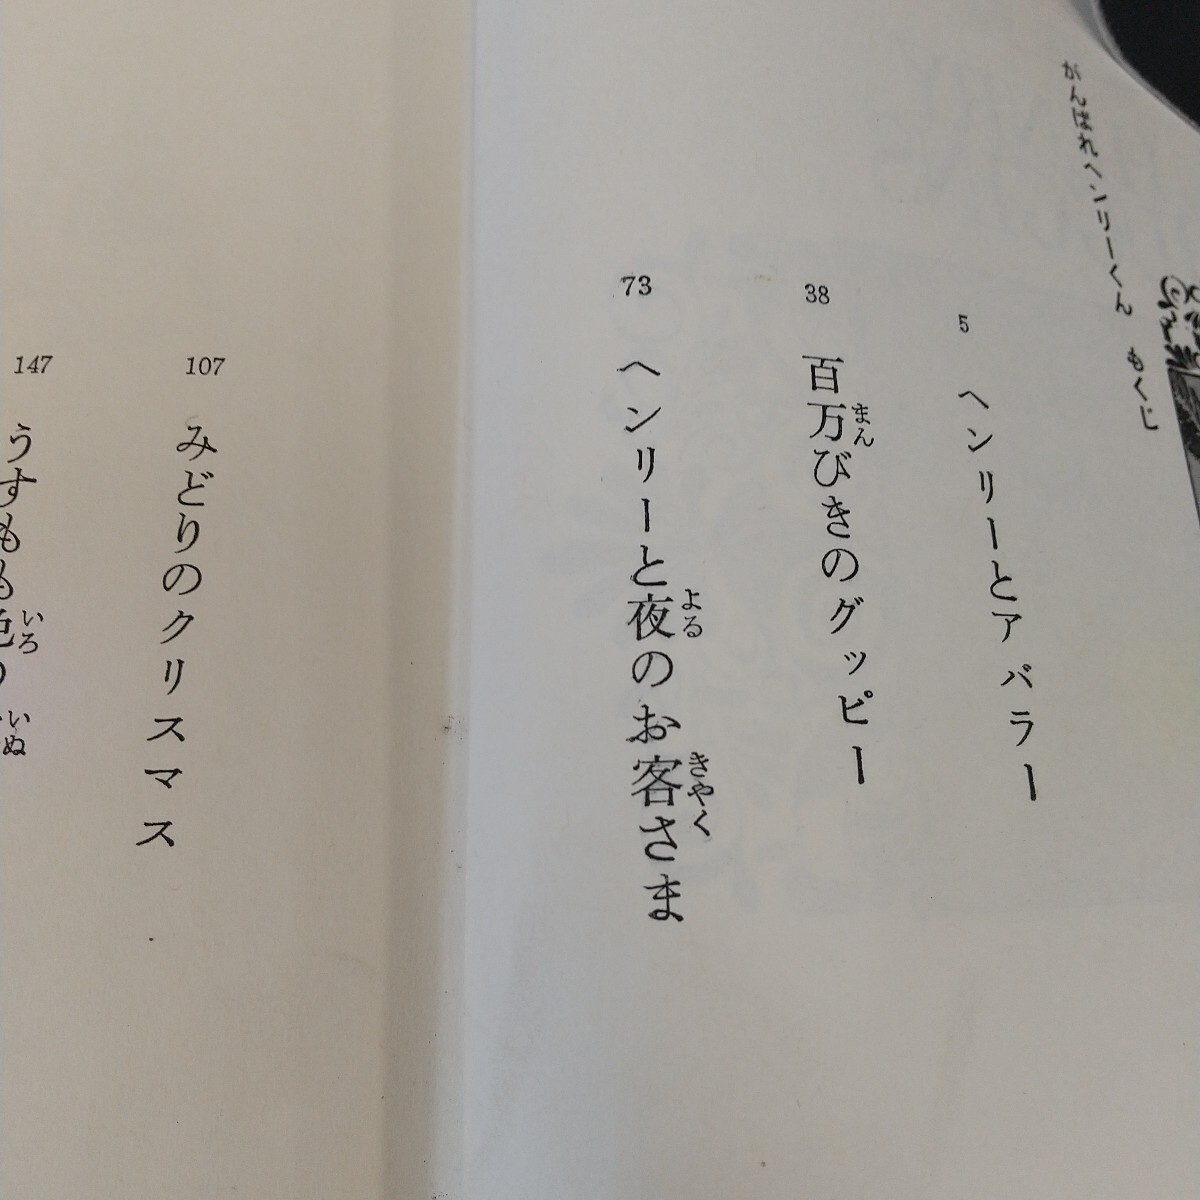 がんばれヘンリーくん もくじ
5 ヘンリーとアバラー
38 百万びきのグッピー
まん
73 ヘンリーと夜のお客さま
よる
きゃく
107 みどりのクリスマス
147 うすもも色の
いろ
いぬ